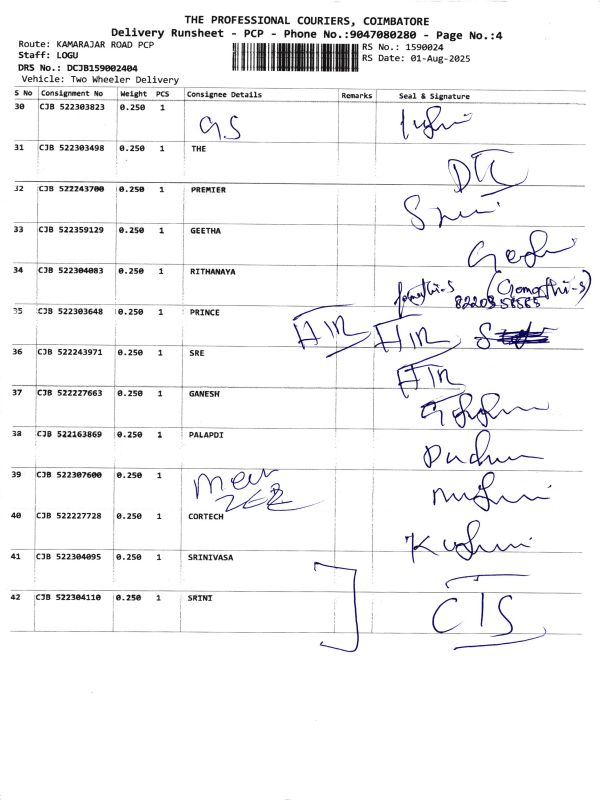 THE PROFESSIONAL COURIERS, COIMBATORE
Delivery Runsheet - PCP - Phone No.:9047080280 - Page No.:4
Route: KAMARAJAR ROAD PCP
Staff: LOGU
DRS No.: DCJB159002404
Vehicle: Two Wheeler Delivery
RS No.: 1590024
RS Date: 01-Aug-2025
S No Consignment No Weight PCS Consignee Details Remarks Seal & Signature
30 CJB 522303823 0.250 1 GS
31 CJB 522303498 0.250 1 THE
32 CJB 522243700 0.250 1 PREMIER
33 CJB 522359129 0.250 1 GEETHA
34 CJB 522304083 0.250 1 RITHANAYA
(Gomathi-s)
35 CJB 522303648 0.250 1 PRINCE
36 CJB 522243971 0.250 1 SRE
37 CJB 522227663 0.250 1 GANESH
38 CJB 522163869 0.250 1 PALAPDI
39 CJB 522307600 0.250 1
40 CJB 522227728 0.250 1 CORTECH
41 CJB 522304095 0.250 1 SRINIVASA
42 CJB 522304110 0.250 1 SRINI CTS